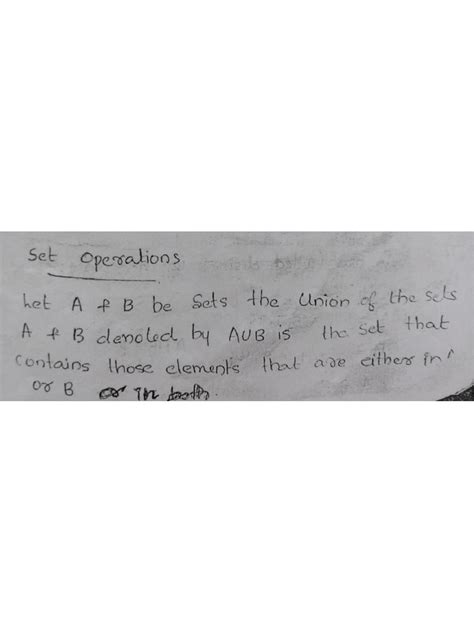 Set Operations
Let A & B be Sets the Union of the Sets
A & B denoted by A∪B is the Set that
Contains those elements that are either in A
or B or in both.